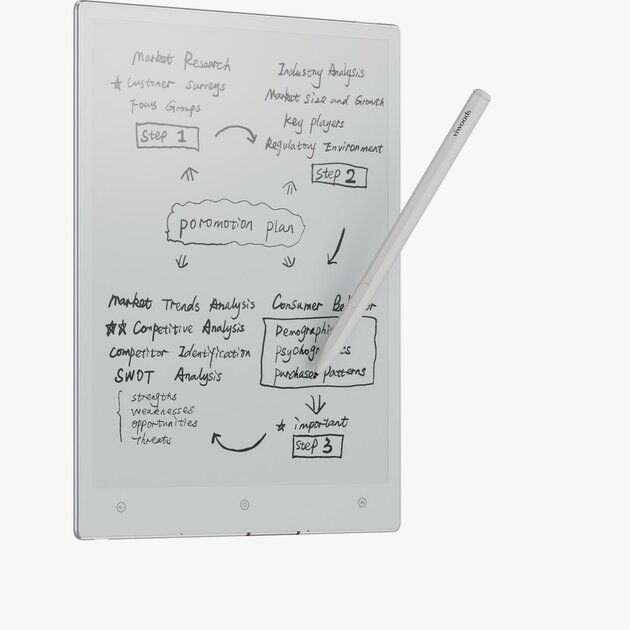 Market Research
☆ Customer surveys
Focus Groups
Step 1
Industry Analysis
Market Size and Growth
key players
Regulatory Environment
Step 2
poromotion plan
Market Trends Analysis
☆☆ Competitive Analysis
Competitor Identification
SWOT Analysis
strengths
weaknesses
opportunities
Threats
Consumer
purchases patterns
☆ important
Step 3
viwoods
AI